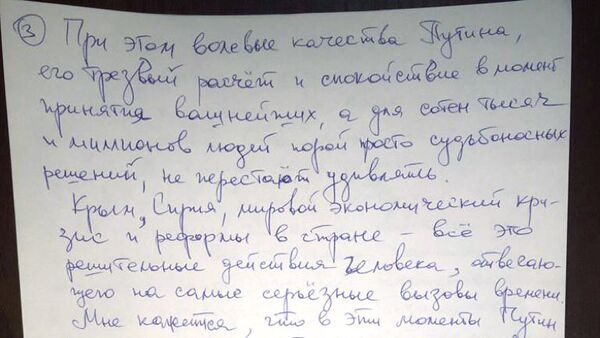 3 При этом волевые качества Путина,
его трезвый расчёт и спокойствие в момент
принятия важнейших, а для сотен тысяч
и миллионов людей порой просто судьбоносных
решений, не перестают удивлять.
Крым, Сирия, мировой экономический кри-
зис и реформы в стране – всё это
решительные действия человека, отвечаю-
щего на самые серьёзные вызовы времени.
Мне кажется, что в эти моменты Путин